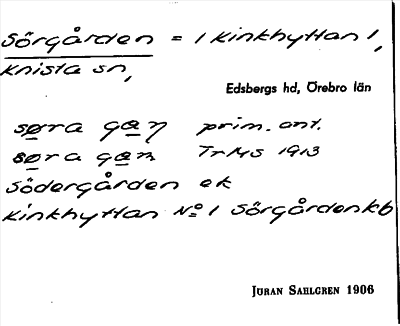 Sörgården = 1 Kinkhyttan 1,
Knista sn,
Edsbergs hd, Örebro län
søra gaη prim. ant.
søra gaɳ TrMS 1913
Södergården ek
Kinkhyttan No 1 Sörgården kb
Jöran Sahlgren 1906